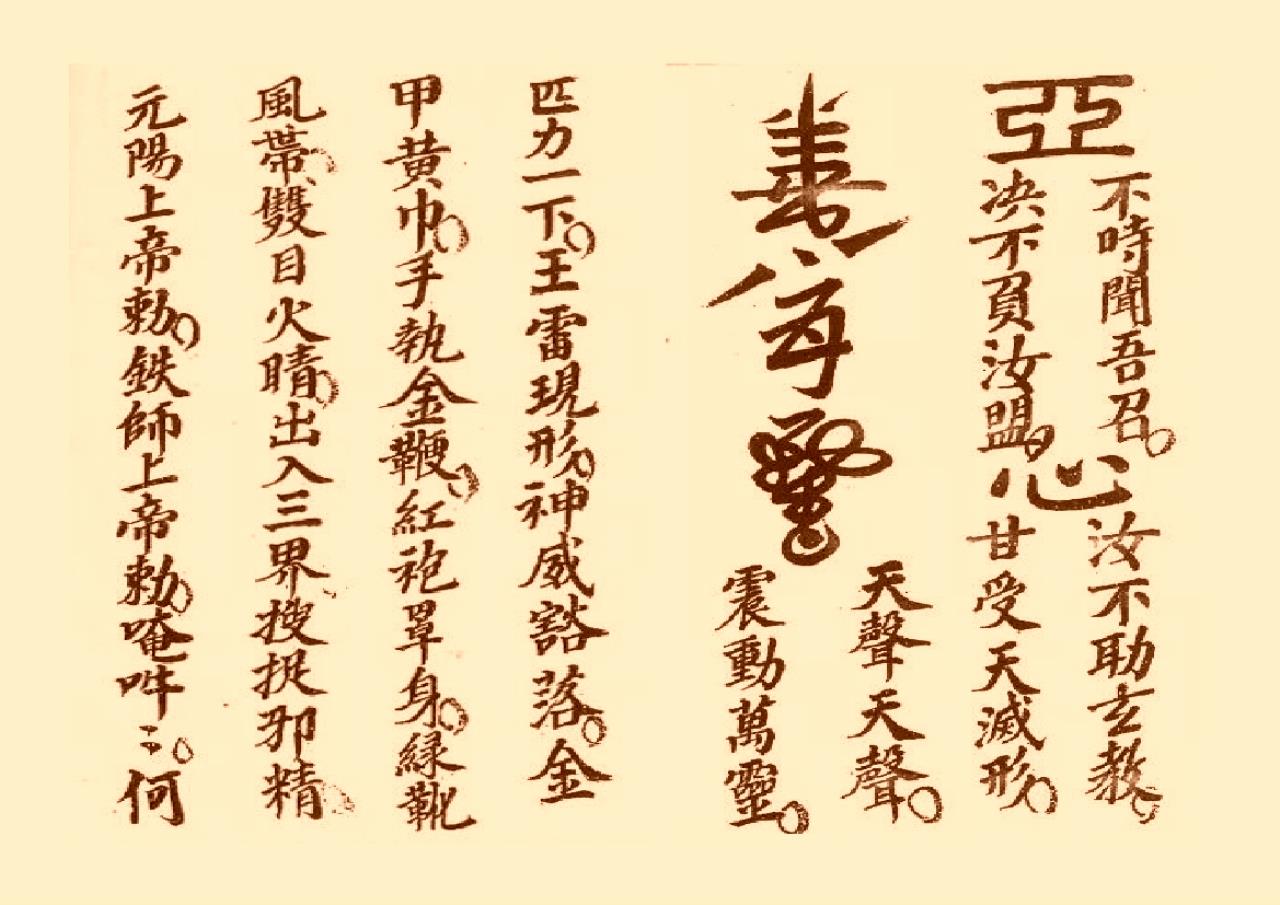 亞
不時聞吾召。
决不負汝盟。
心
汝不助玄教。
甘受天滅形。
天聲天聲。
震動萬靈。
匹力一下。王雷現形。神威豁落。金
甲黃巾。手執金鞭。紅袍罩身。緑靴
風帶。雙目火睛。出入三界。搜捉邪精。
元陽上帝勅。鉄師上帝勅。唵吽〻。何